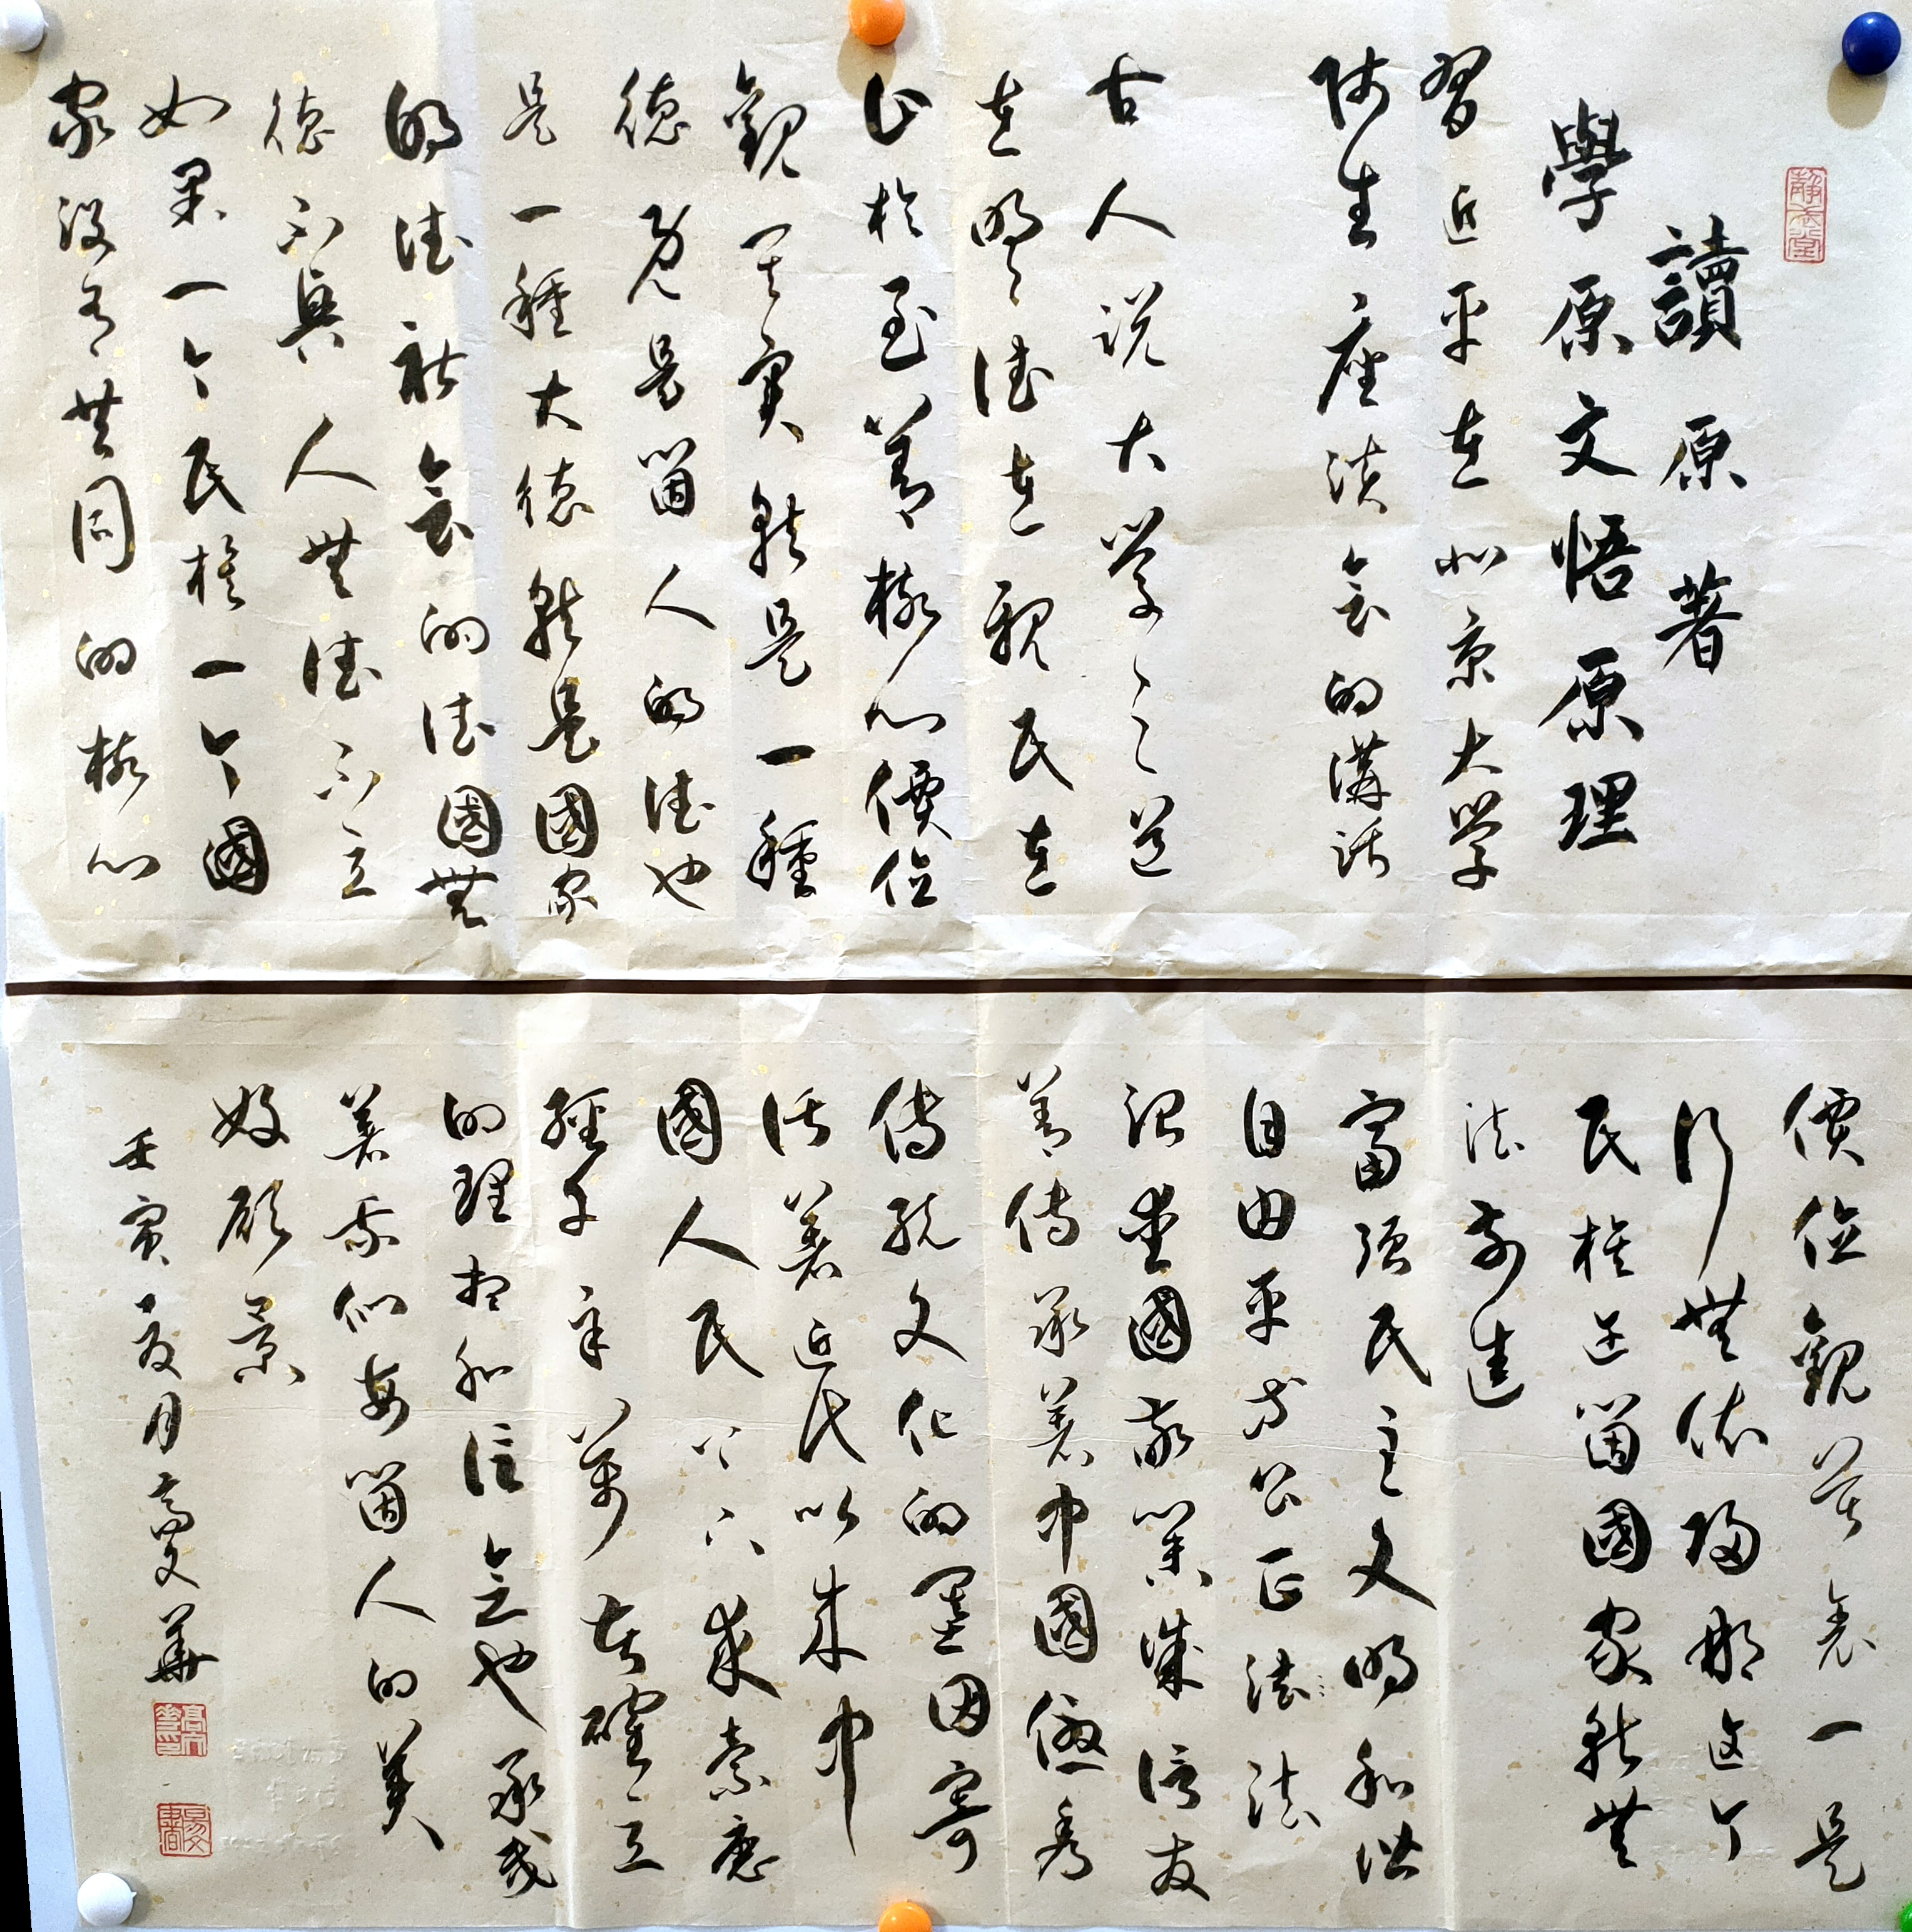 讀原著
學原文悟原理
習近平在北京大学
师生座谈会的講話
古人说大学之道
在明明德在親民在
止於至善核心價值
觀其實就是一種
德既是箇人的德也
是一種大德就是國家
的德社会的德國無
德不興人無德不立
如果一个民族一个國
家没有共同的核心
價值觀莫衷一是
行無依歸那这个
民族这箇國家就無
法前進
富强民主文明和谐
自由平等公正法治
爱國敬業诚信友
善傳承着中國優秀
傳統文化的基因寄
活着近民以来中
國人民上下求索歷
經千辛萬苦確立
的理想和信念也承载
着我們每箇人的美
好願景
壬寅夏月高文華